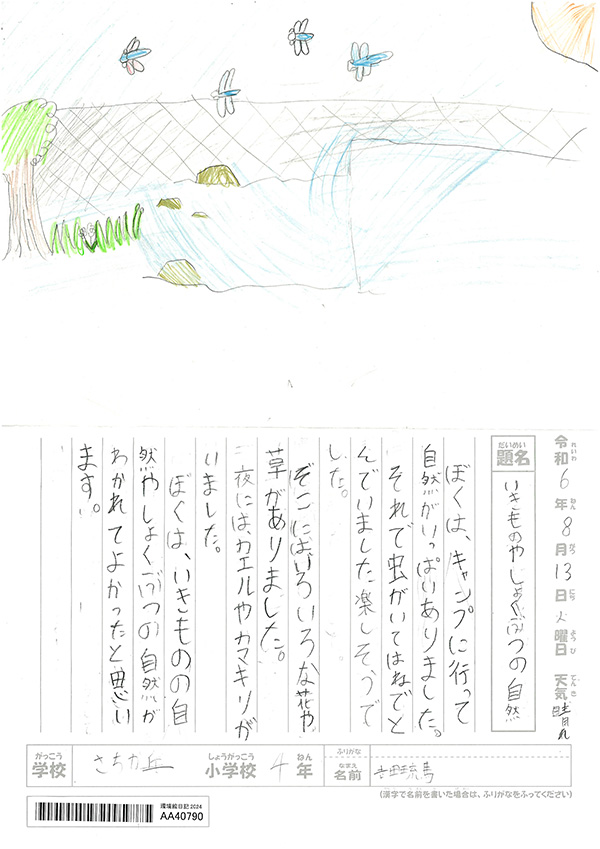 令和6年8月13日火曜日 天気 晴れ
れいわ ねん がつ にち ようび てんき
だいめい
題名 いきものやしょくぶつの自然
ぼくは、キャンプに行って
自然がいっぱいありました。
それで虫がいてはねでと
んでいました楽しそうで
した。
そこには、いろいろな花や
草がありました。
夜には、カエルやカマキリが
いました。
ぼくは、いきものの自
然やしょくぶつの自然が
わかれてよかったと思い
ます。
がっこう しょうがっこう ねん ふりがな
学校 さちが丘 小学校 4年 なまえ 名前
(漢字で名前を書いた場合は、ふりがなをふってください)
環境絵日記2024
AA40790